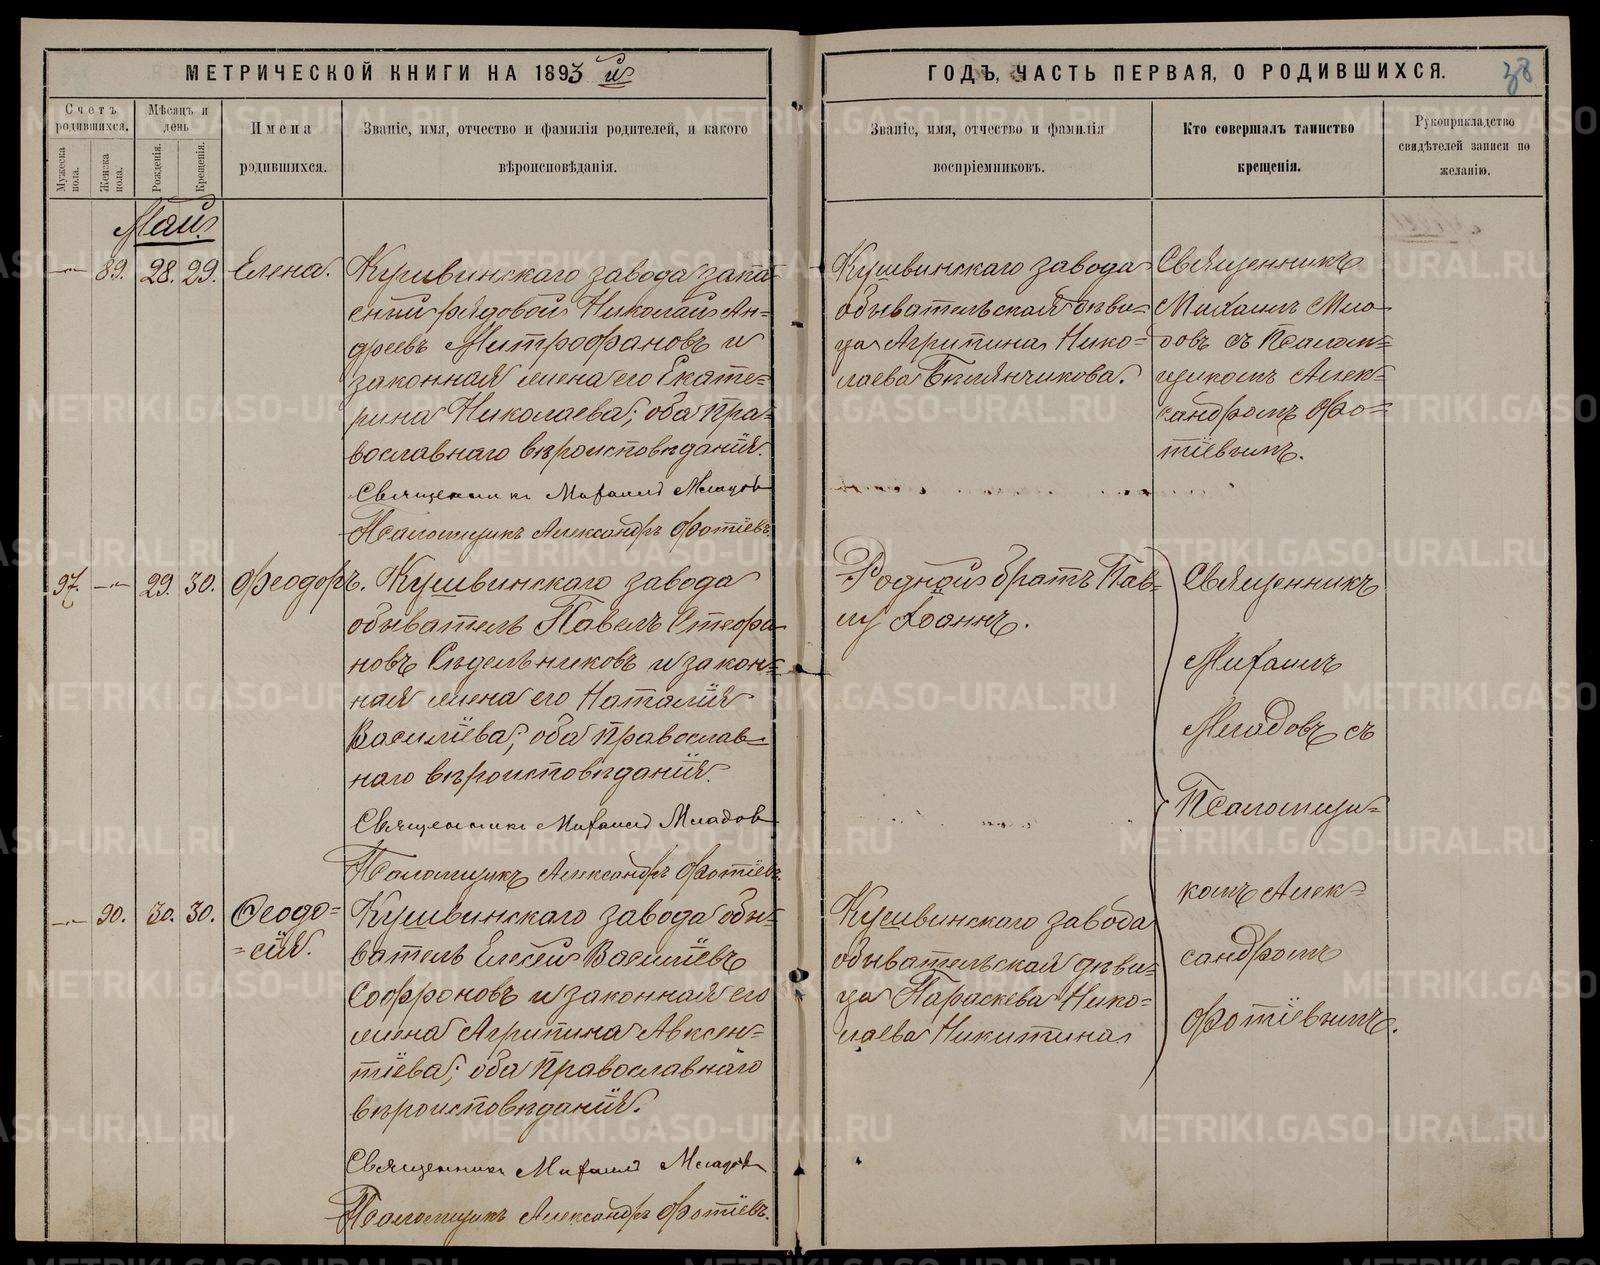 МЕТРИЧЕСКОЙ КНИГИ НА 1893 й
ГОДЪ, ЧАСТЬ ПЕРВАЯ, О РОДИВШИХСЯ.
38
Счетъ родившихся.
Мужеска пола.
Женска пола.
Мѣсяцъ и день
Рожденія.
Крещенія.
Имена
родившихся.
Званіе, имя, отчество и фамилія родителей, и какого
вѣроисповѣданія.
Званіе, имя, отчество и фамилія
воспріемниковъ.
Кто совершалъ таинство
крещенія.
Рукоприкладство
свидѣтелей записи по
желанію.
Май
89. 28. 29. Елена.
Кушвинскаго завода запа
сный рядовой Николай Ан=
дреевъ Митрофановъ и
законная жена его Екате=
рина Николаева; оба пра=
вославнаго вѣроисповѣданія.
Священникъ Михаилъ Младовъ
Псаломщикъ Александръ Фотіевъ.
Кушвинскаго завода
обывательская дѣви
ца Агрипина Нико=
лаева
Священникъ
Михаилъ Мла
довъ съ Псалом=
щикомъ Алек=
сандромъ Фо=
тіевымъ.
97. 29. 30. Феодоръ.
Кушвинскаго завода
обыватель Павелъ Стефа
новъ Сѣдельниковъ и закон=
ная жена его Наталія
Василіева; оба православ=
наго вѣроисповѣданія.
Священникъ Михаилъ Младовъ
Псаломщикъ Александръ Фотіевъ.
Родной братъ Пав=
лу Іоаннъ.
Священникъ
Михаилъ
Младовъ съ
Псаломщи=
комъ Алек=
сандромъ
Фотіевымъ.
90. 30. 30. Феодо=
=сія.
Кушвинскаго завода обы=
ватель Елесей Василіевъ
Софроновъ и законная его
жена Агрипина Авксен=
тіева; оба православнаго
вѣроисповѣданія.
Священникъ Михаилъ Младовъ
Псаломщикъ Александръ Фотіевъ.
Кушвинскаго завода
обывательская дѣви=
ца Параскева Нико=
лаева Никитина
METRIKI.GASO-URAL.RU